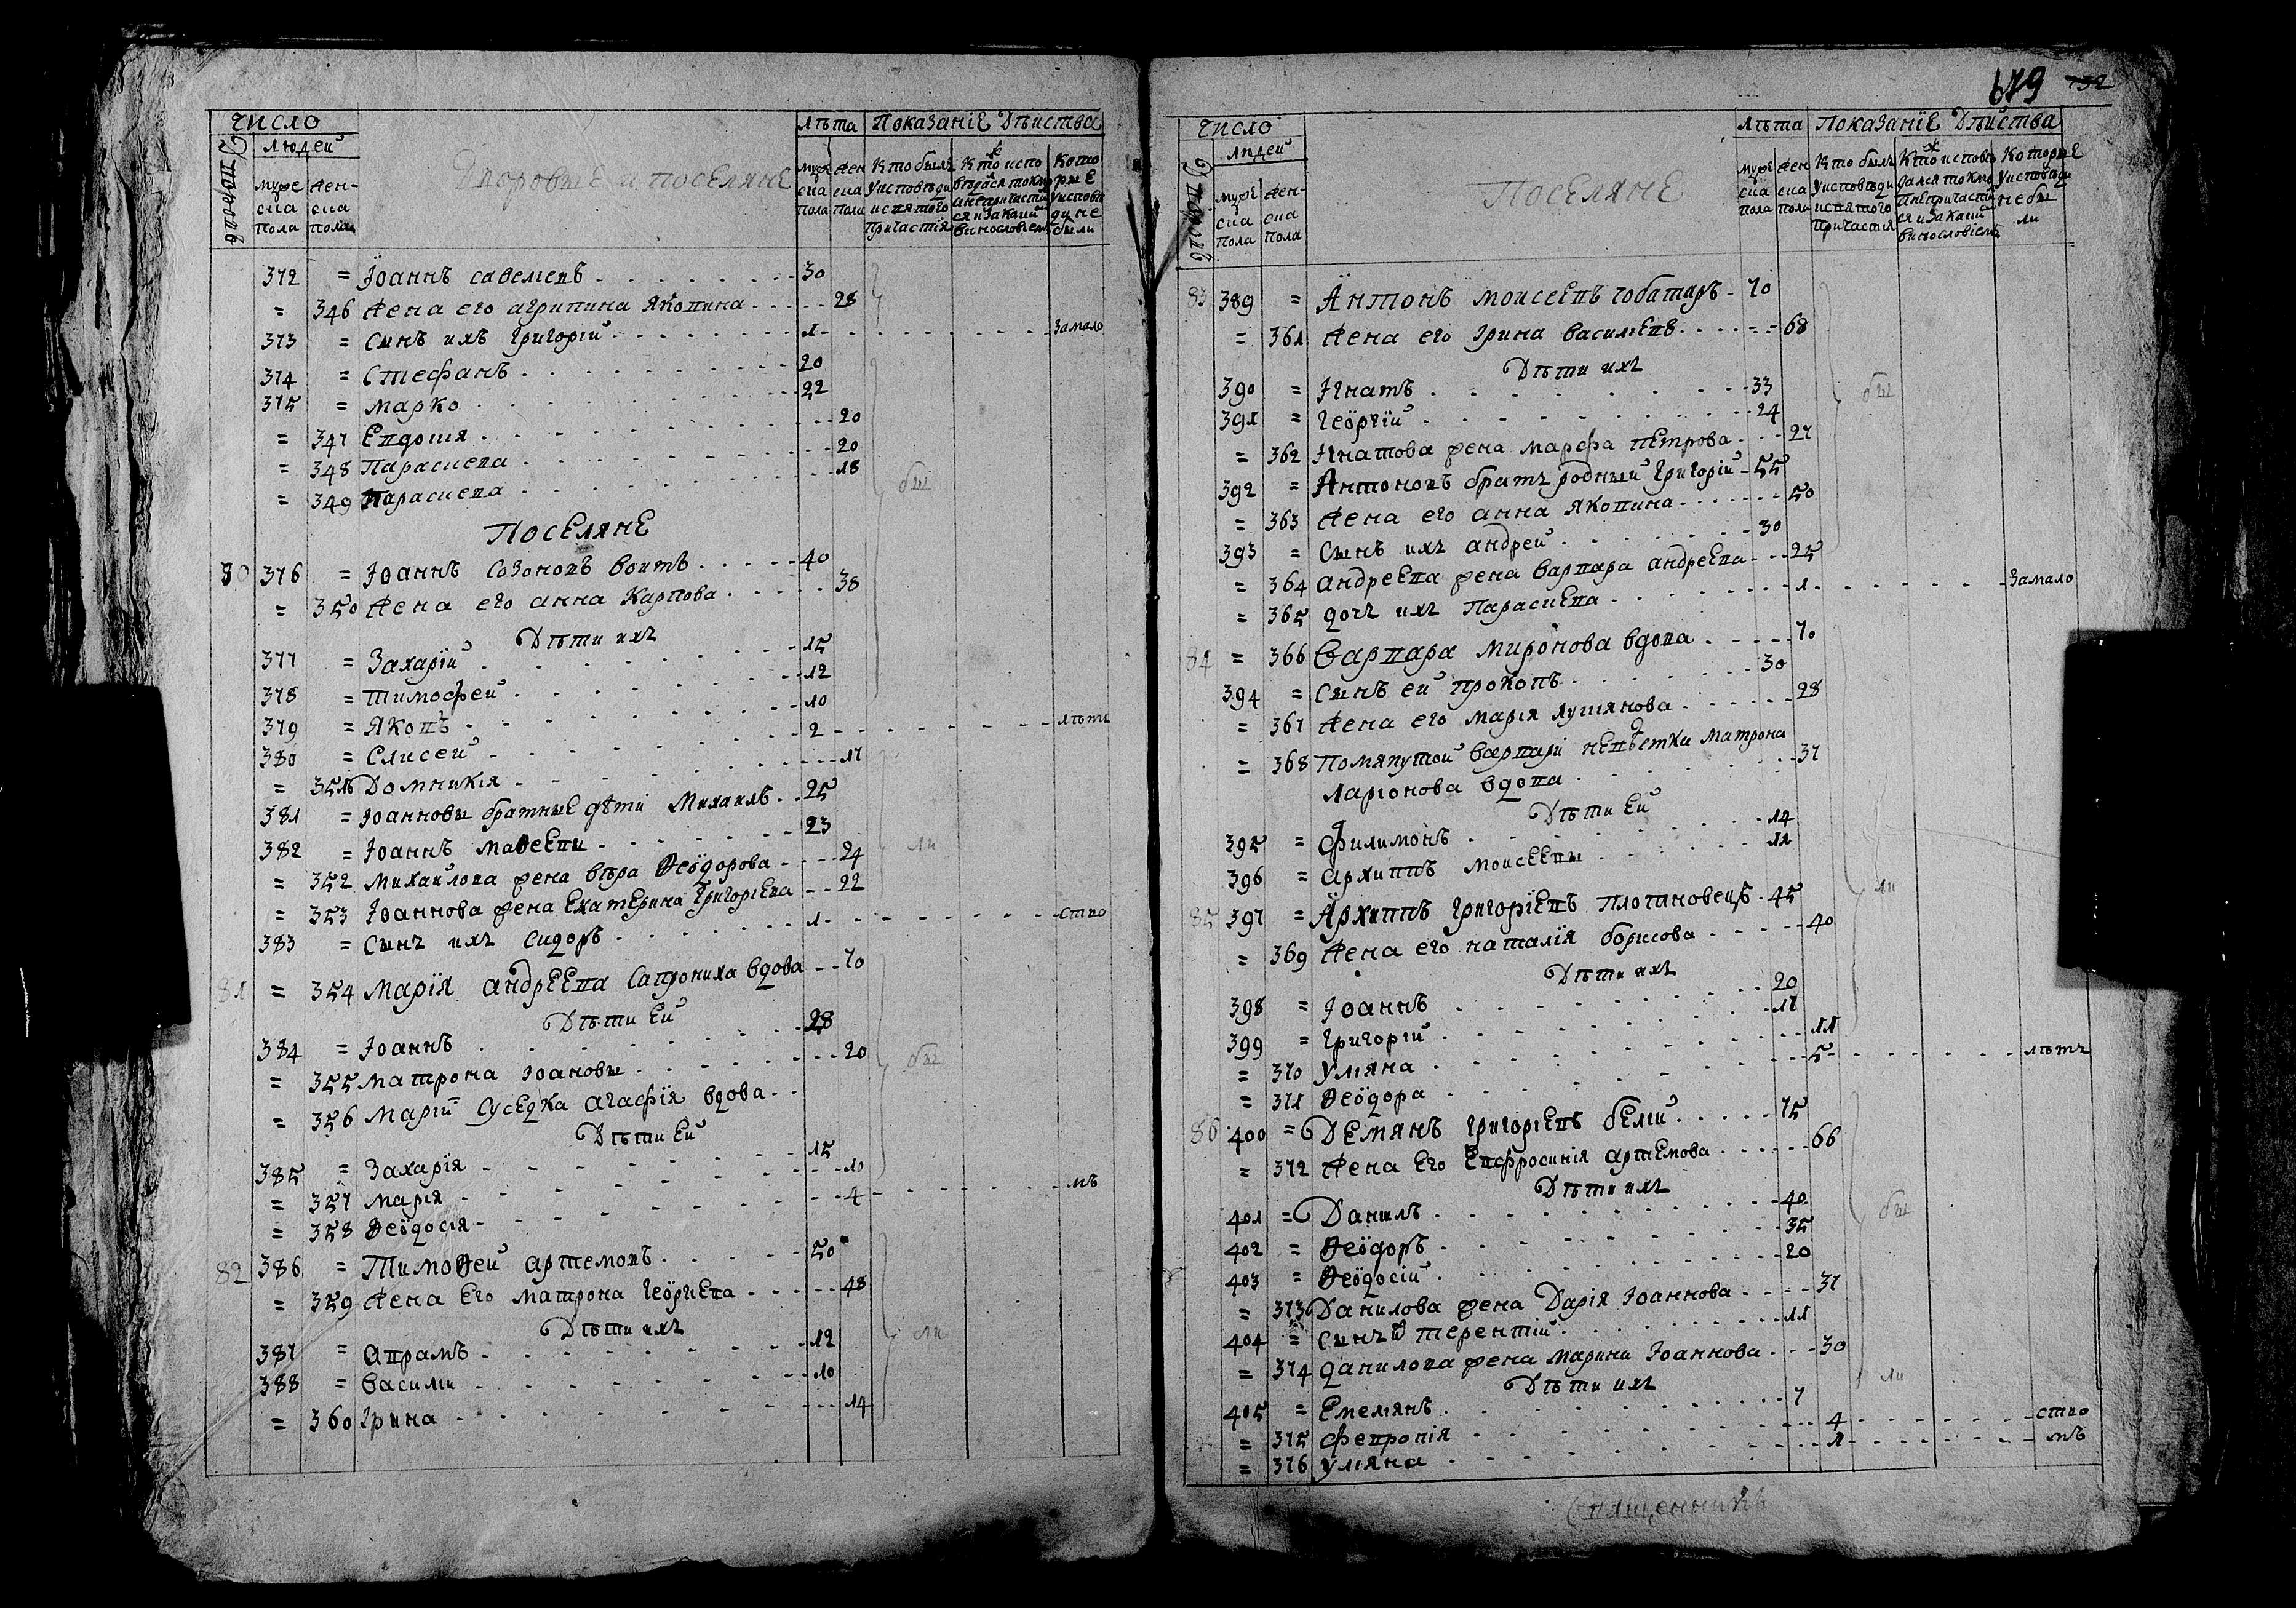 Число
людей
Дворовъ
мужеска пола
женска пола
Дворовые и поселяне
Лѣта
мужеска пола
женска пола
Показаніе Дѣиства
Кто былъ у исповѣди и святого причастія
Кто исповѣдася токмо а непричастися и за какии винословіем
Которые у исповѣди не были
372 = Їоаннъ савелиевъ 30
= 346 Жена его агрипина Яковлина 28
373 = Сынъ ихъ григорїй 1 За мало
374 = Стефанъ 20
375 = Марко 22
= 347 Евдокия 20
= 348 Параскева 20
= 349 Параскева 18
бы
Поселяне
80 376 = Іоаннъ Созоновъ воитъ 40
= 350 Жена его анна Карпова 38
Дѣти ихъ
377 = Захарїй 15
378 = Тимофей 12
379 = Яковъ 10
380 = Єлисей 2 лѣти
= 351 Домникїя 17
381 = Іоанновы братные дѣти Михаилъ 25
382 = Іоаннъ Маѳееви 23
ли
= 352 Михаилова жена вѣра Ѳеодорова 24
= 353 Іоаннова жена Екатерина Григоріева 22
383 = Сынъ ихъ Сидоръ 1 ство
81 = 354 Марїя андреева Сапрониха вдова 70
Дѣти Ей
384 = Іоаннъ 28
= 355 матрона Іоановы 20
бы
= 356 Марїи суседка агафїя вдова
Дѣти Ей
385 = Захарїя 15
= 357 марїя 10
= 358 Ѳеодосїя 4 мъ
82 386 = Тимоѳей артемовъ 50
= 359 Жена Его матрона Георгиева 48
Дѣти ихъ
387 = Аврамъ 12
ли
388 = Василии 10
= 360 Ірина 14
679 732
Число
людей
Дворовъ
мужеска пола
женска пола
Поселяне
Лѣта
мужеска пола
женска пола
Показанїе Дѣйства
Кто былъ у исповѣди и святого причастїя
Кто исповѣдался токмо а непричастися и за какии винословїем
Которые у исповѣди не были
83 389 = Антонъ моисеевъ чоботаръ 70
= 361 Жена его Ірина василиева 68
Дѣти ихъ
390 = Игнатъ 33
391 = Георгїй 24
бы
= 362 Игнатова жена марфа петрова 27
392 = Антоновъ братъ родный григорїй 55
= 363 Жена его анна Яковлина 50
393 = Сынъ ихъ андрей 30
= 364 андреева жена варвара андреева 25
= 365 дочь ихъ Параскева 1 За мало
84 = 366 Варвара миронова вдова 70
394 = Сынъ ей прокопъ 30
= 367 Жена его марїя лукянова 28
= 368 Помянутой варвари невѣстка матрона 37
Ларїонова вдова
Дѣти Ей
395 = Филимонъ 14
396 = архиппъ моисеевы 12
ли
85 397 = Архиппъ григорїевъ плотановецъ 45
= 369 Жена его наталїя борисова 40
Дѣти ихъ
398 = Іоаннъ 20
399 = Григорїй 17
= 370 Улияна 11
= 371 Ѳеодора 5 лѣтъ
86 400 = Демянъ григорїевъ белий 75
= 372 Жена Его Евфросинїя артемова 66
Дѣти ихъ
401 = Данилъ 40
402 = Ѳеодоръ 35
бы
403 = Ѳеодосїй 20
= 373 Данилова жена Дарїя Іоаннова 37
404 = Сынъ терентїй 11
= 374 данилова жена марина Іоаннова 30
Дѣти ихъ
ли
405 = Емелянъ 7
= 375 февронїя 4 ство
= 376 улияна 1 мъ
Священникъ